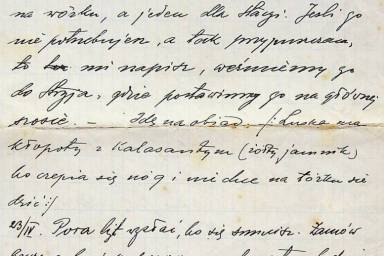 na wózku, a jeden dla Stasi. Jeśli go
nie potrzebujesz, a tak przypuszczam,
to mi napisz, weźmiemy go
do Stryja, gdzie postawimy go na głównej
szosie. — Idę na obiad. /: Luśka ma
kłopoty z Kalasantym (żółty jamnik)
bo czepia się nóg i nie chce na łóżku sie
dzieć :/
23/IV. Pora być wysłać, bo się smucisz. Zamów